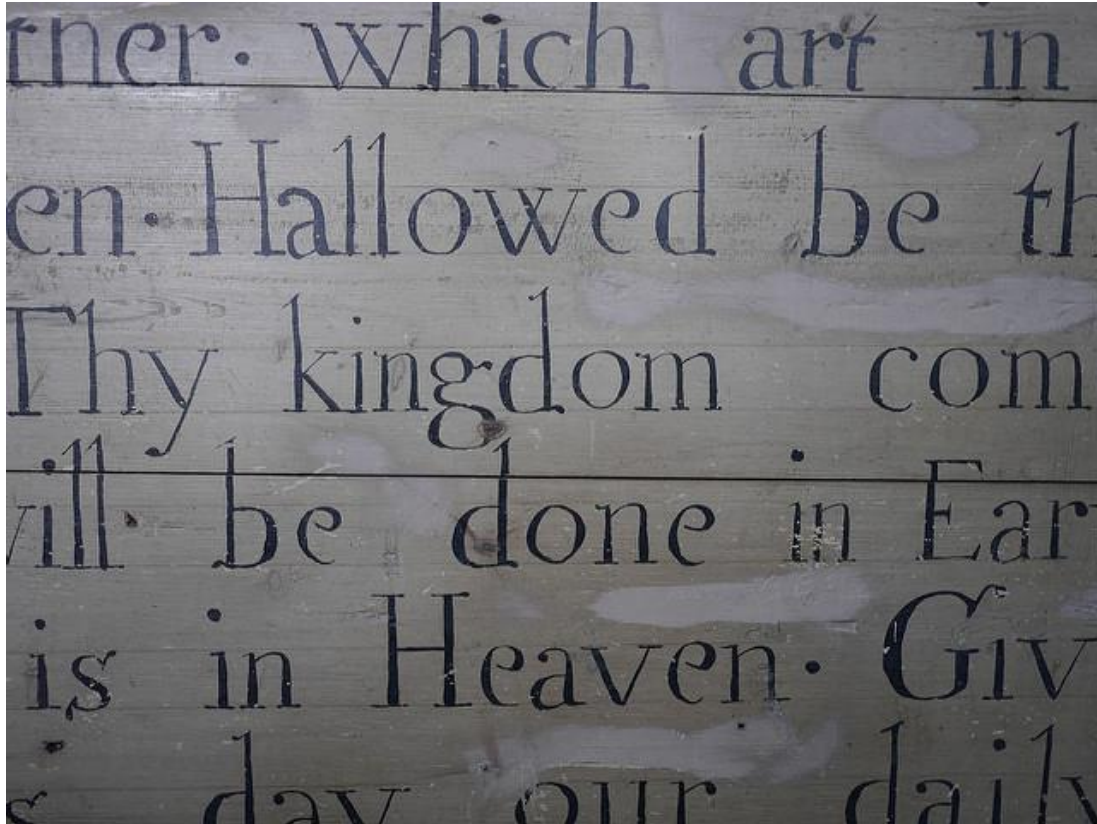 ther· which art in
en· Hallowed be th
Thy kingdom com
will be done in Ear
is in Heaven· Giv
s day our daily